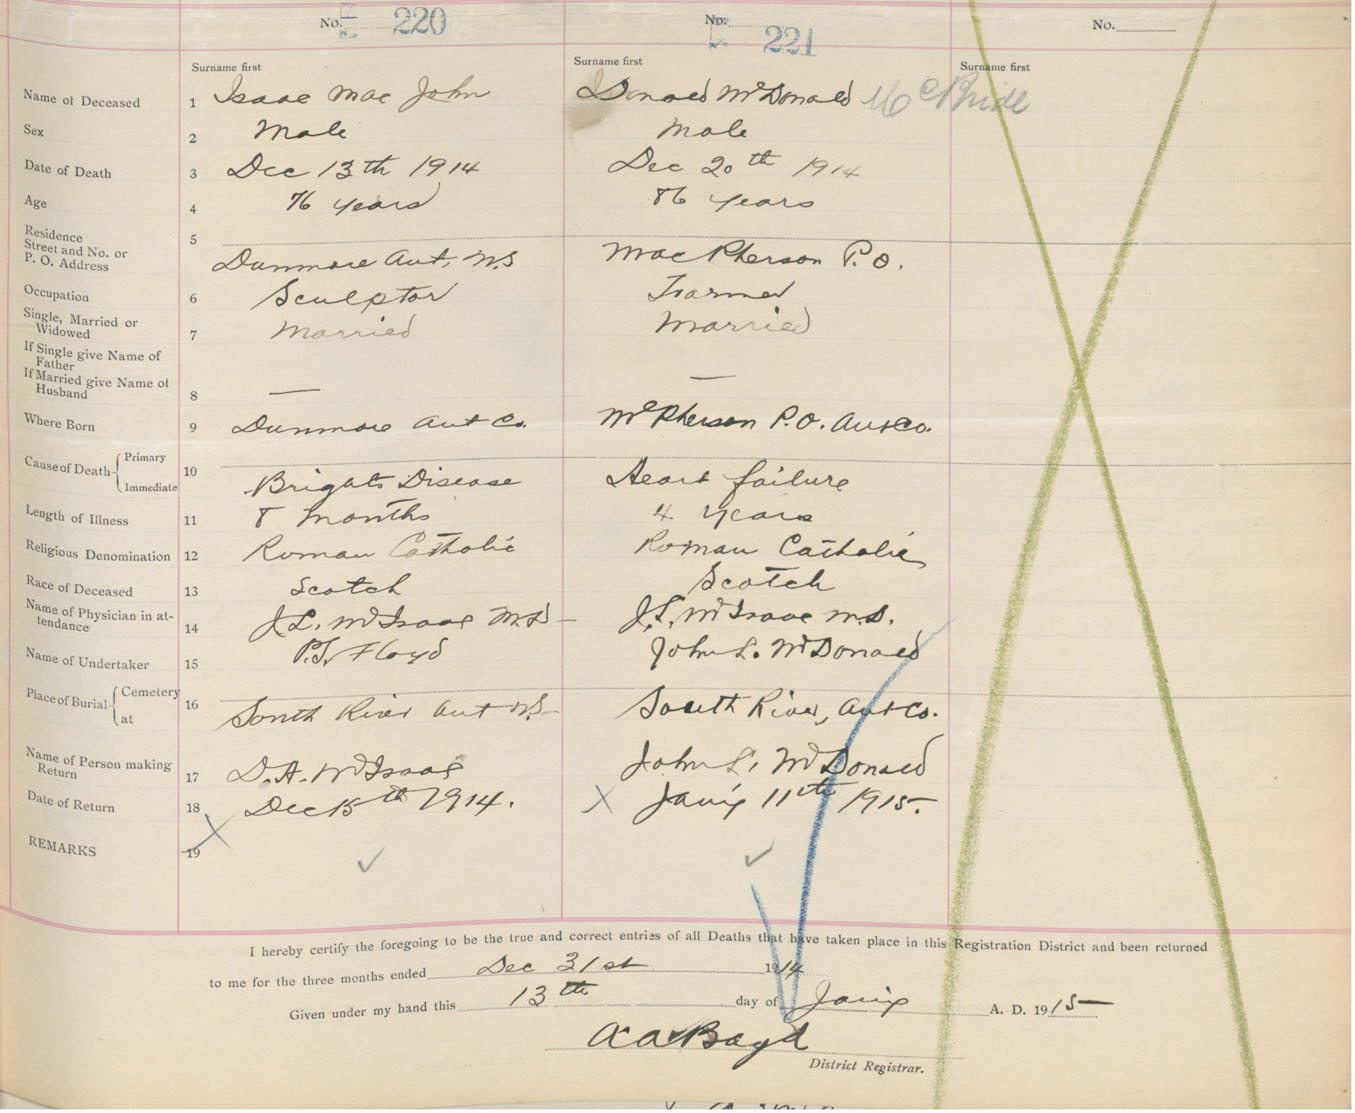 No. 220
No. 221
No.
Surname first
Surname first
Surname first
Name of Deceased 1 Isaac Mac John Donald McDonald McBride
Sex 2 Male Male
Date of Death 3 Dec 13th 1914 Dec 20th 1914
Age 4 76 years 86 years
Residence
Street and No. or
P. O. Address 5 Dunmore Ant. N.S MacPherson P.O.
Occupation 6 Sculptor Farmer
Single, Married or
Widowed 7 Married Married
If Single give Name of
Father
If Married give Name of
Husband 8 — —
Where Born 9 Dunmore Ant Co. McPherson P.O. Ant Co.
Cause of Death { Primary
Immediate 10 Brights Disease Heart failure
Length of Illness 11 8 months 4 years
Religious Denomination 12 Roman Catholic Roman Catholic
Race of Deceased 13 Scotch Scotch
Name of Physician in at-
tendance 14 J.L. McIsaac M.D – J.L. McIsaac M.D.
Name of Undertaker 15 P.J. Floyd John L. McDonald
Place of Burial { Cemetery
at 16 South River Ant N.S South River, Ant Co.
Name of Person making
Return 17 D.A. McIsaac John L. McDonald
Date of Return 18 Dec 15th 1914. X Jan'y 11th 1915.
REMARKS 19 X
I hereby certify the foregoing to be the true and correct entries of all Deaths that have taken place in this Registration District and been returned
to me for the three months ended Dec 31st 1914
Given under my hand this 13th day of Jan'y A. D. 1915
A A Boyd
District Registrar.